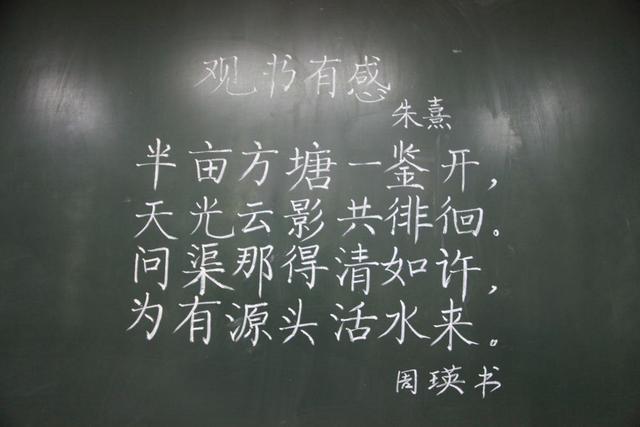 观书有感
朱熹
半亩方塘一鉴开，
天光云影共徘徊。
问渠那得清如许，
为有源头活水来。
周瑛书